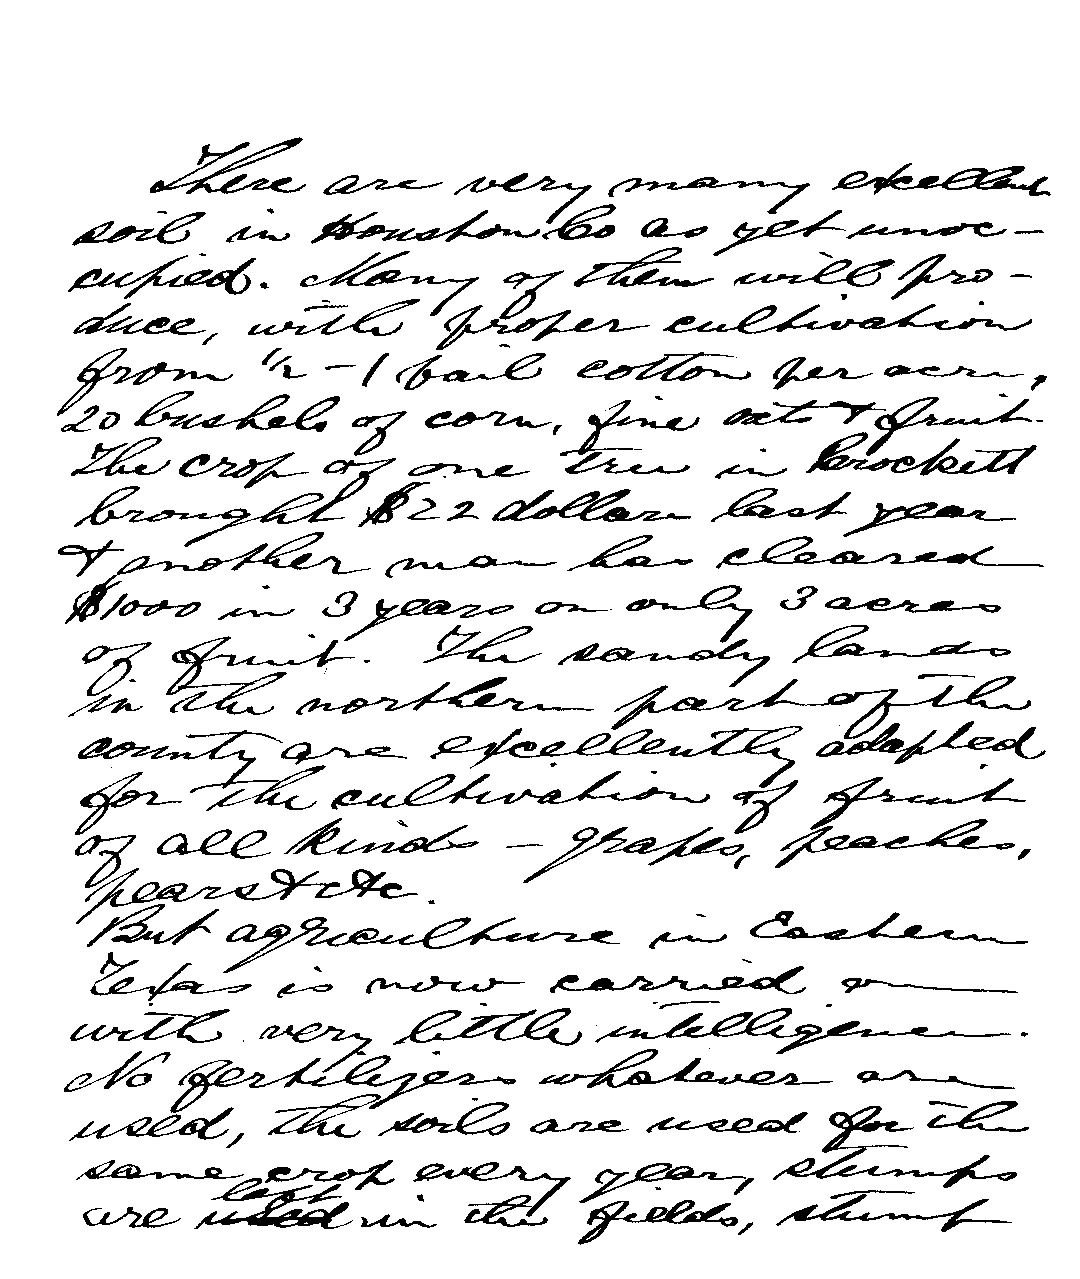 There are very many excellent
soil in Houston Co as yet unoc-
cupied. Many of them will pro-
duce, with proper cultivation
from 1/2 - 1 bail cotton per acre,
20 bushels of corn, fine oats & fruit.
The crop of one tree in Crockett
brought $22 dollars last year
& another man has cleared
$1000 in 3 years on only 3 acres
of fruit. The sandy lands
in the northern part of the
county are excellently adapted
for the cultivation of fruit
of all kinds - grapes, peaches,
pears & c &c.
But agriculture in Eastern
Texas is now carried on
with very little intelligence.
No fertilizers whatever are
used, the soils are used for the
same crop every year, stumps
are left in the fields, stump